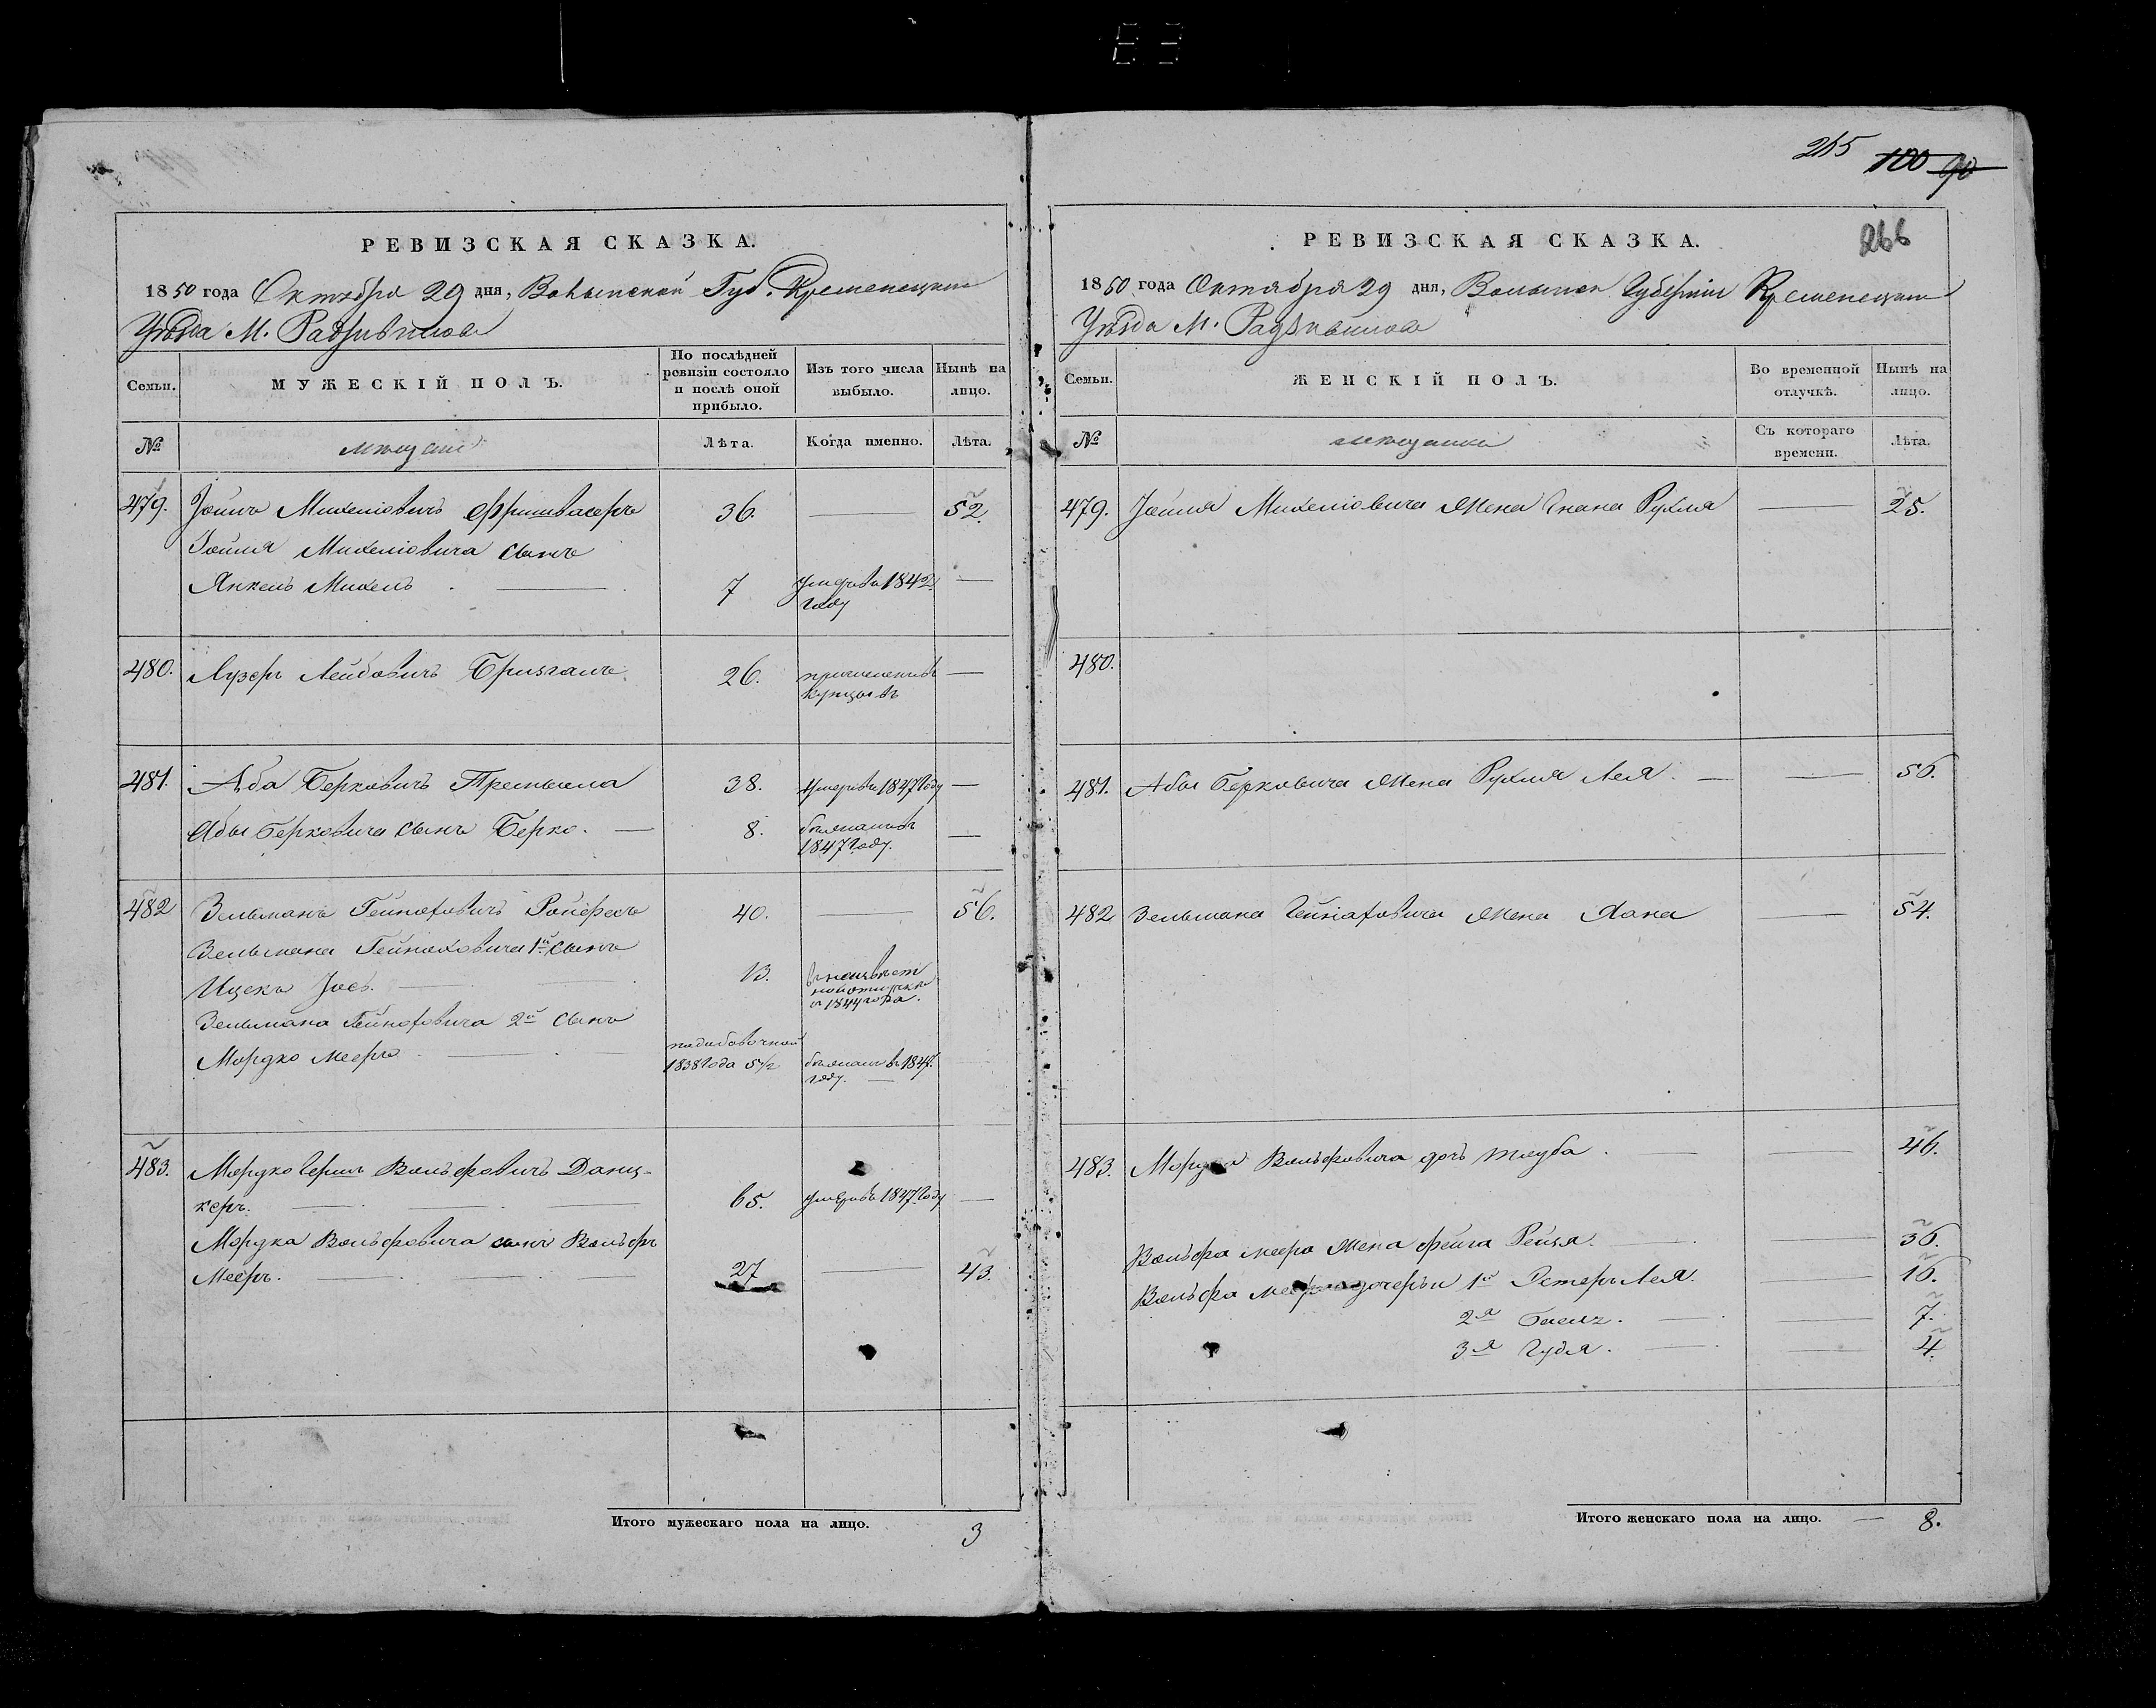 РЕВИЗСКАЯ СКАЗКА.
1850 года Октября 29 дня, Волынской Губ. Кременецкаго
Уѣзда М. Радзивилова
Семьи.
МУЖЕСКІЙ ПОЛЪ.
По послѣдней ревизіи состояло и послѣ оной прибыло.
Изъ того числа выбыло.
Нынѣ на лицо.
№
мѣщане
Лѣта.
Когда именно.
Лѣта.
479. Іойнъ Михелювичъ Фришвасеръ 36. — 52.
Іойня Михелювича сынъ
Янкель Михель — 7 умеръ въ 1842 году —
480. Лузеръ Лейбовичъ 26. —
481. Аба Берковичъ 38. умеръ въ 1847 году —
Абы Берковича сынъ Берко. — 8. 1847 году. —
482 Зельманъ Гейноховичъ Ройфесъ 40. — 56.
Зельмана Гейноховича 1й сынъ
Ицекъ Іось. — 13. съ 1844 года.
Зельмана Гейноховича 2й сынъ
Мордко Мееръ — 1838 года 5 1/2 въ 184 году. —
483. Мордко Гершъ Вольфовичъ Данц-
керъ. — 65. умеръ въ 1847 году —
Мордка Вольфовича сынъ Вольфъ
Мееръ. — 27 — 43.
Итого мужескаго пола на лицо. 3
265 100 90
266
РЕВИЗСКАЯ СКАЗКА.
1850 года Октября 29 дня, Волынской Губерніи Кременецкаго
Уѣзда М. Радзивилова
Семьи.
ЖЕНСКІЙ ПОЛЪ.
Во временной отлучкѣ.
Нынѣ на лицо.
№
мѣщанки
Съ котораго времени.
Лѣта.
479. Іойня Михелювича жена Рухля — 25.
480.
481. Абы Берковича жена Рухля Лея. — 56.
482 Зельмана Гейноховича жена Хана — 54.
483. Мордка Вольфовича дочь Тауба — 46.
Вольфа Меера жена Фейга Рейзя. — 36.
Вольфа Меера дочери 1я Эстеръ Лея. 16.
2я — 7.
3я Гудя. — 4.
Итого женскаго пола на лицо. — 8.